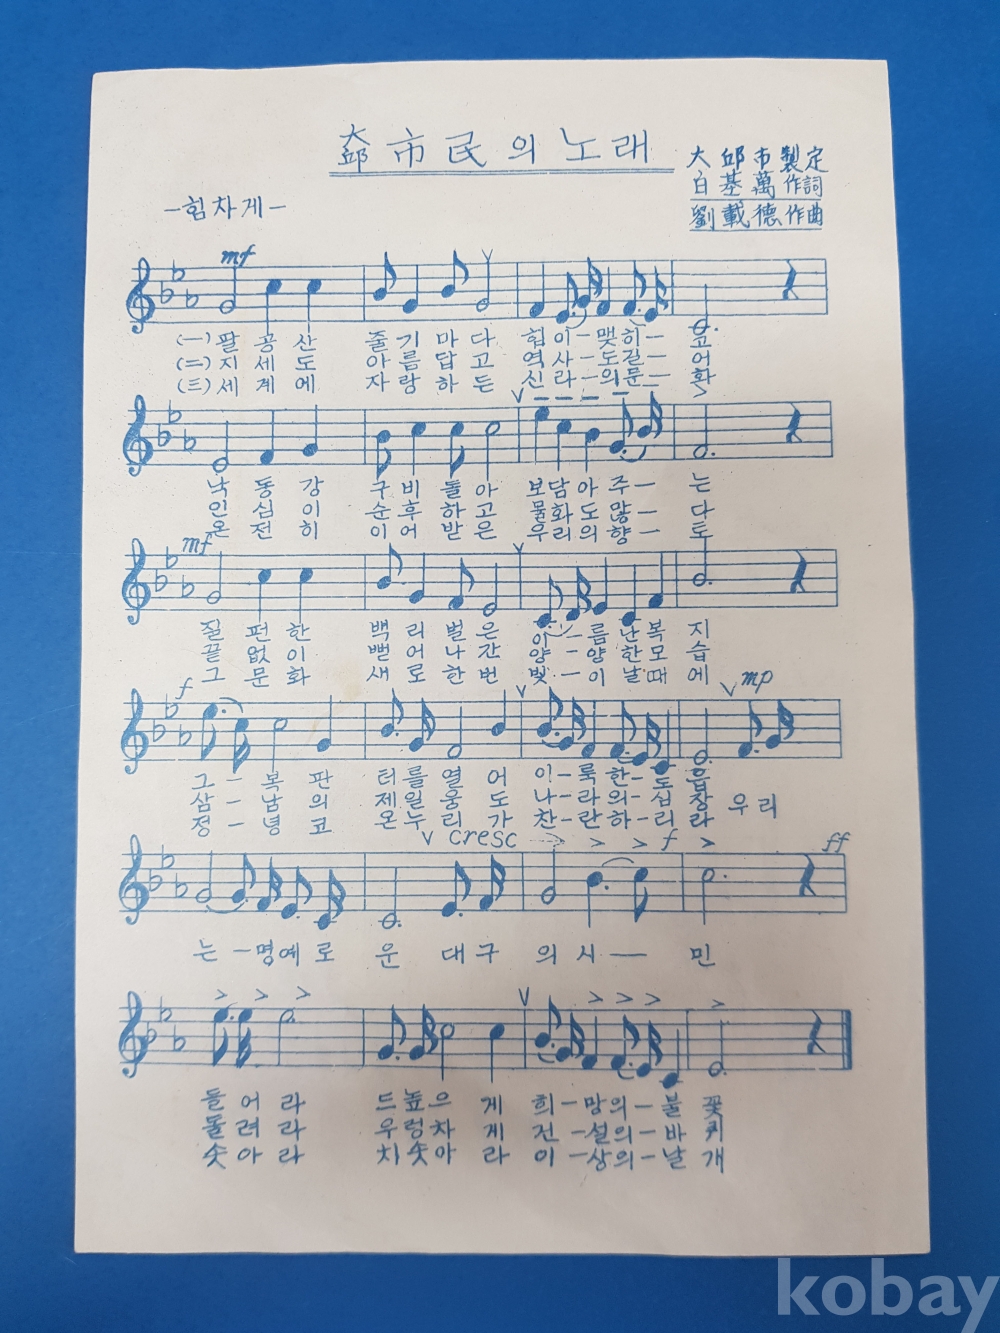 大邱市民의 노래
大邱市製定
白基萬作詞
劉載德作曲
-힘차게-
mf
(一) 팔 공 산 줄 기 마 다 힘 이 - 맺 히 - 고
(二) 지 세 도 아 름 답 고 역 사 - 도 길 - 어
(三) 세 계 에 자 랑 하 든 신 라 - 의 문 - 화
낙 동 강 구 비 돌 아 보 담 아 주 - 는
인 심 이 순 후 하 고 물 화 도 많 - 다
온 전 히 이 어 받 은 우 리 의 향 - 토
mf
질 펀 한 백 리 벌 은 이 - 름 난 복 지
끝 없 이 뻗 어 나 간 양 - 양 한 모 습
그 문 화 새 로 한 번 빛 - 이 날 때 에
f mp
그 - 복 판 터 를 열 어 이 - 룩 한 - 도 읍
삼 - 남 의 제 일 웅 도 나 - 라 의 - 심 장 우 리
정 - 녕 코 온 누 리 가 찬 - 란 하 - 리 라
cresc f ff
는 - 명 예 로 운 대 구 의 시 - 민
들 어 라 드 높 으 게 희 - 망 의 - 불 꽃
돌 려 라 우 렁 차 게 건 - 설 의 - 바 퀴
솟 아 라 치 솟 아 라 이 - 상 의 - 날 개
kobay